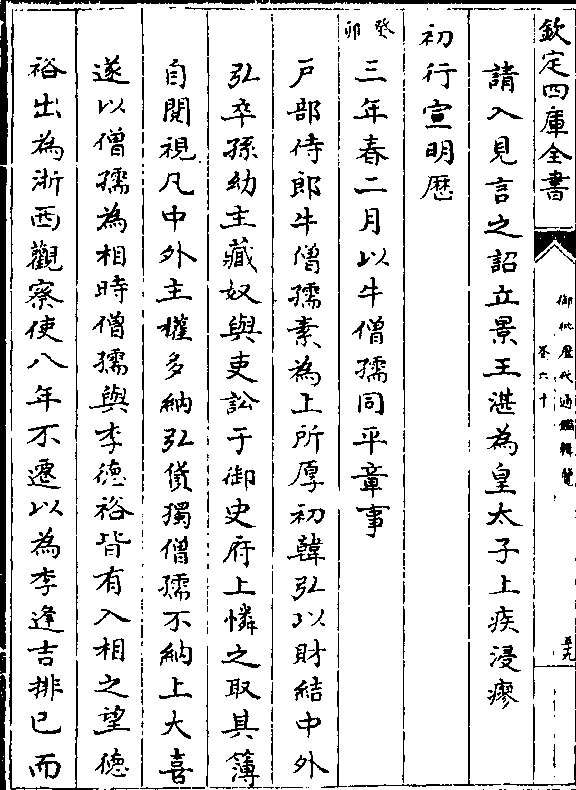 欽定四庫全書
御批歷代通鑑輯覽
卷六十
五九
請入見言之詔立景王湛為皇太子上疾浸瘳
初行宣明歷
癸卯三年春二月以牛僧孺同平章事
戶部侍郎牛僧孺素為上所厚初韓弘以財結中外
弘卒孫幼主藏奴與吏訟于御史府上憐之取其簿
自閱視凡中外主權多納弘貨獨僧孺不納上大喜
遂以僧孺為相時僧孺與李德裕皆有入相之望德
裕出為浙西觀察使八年不遷以為李逢吉排已而